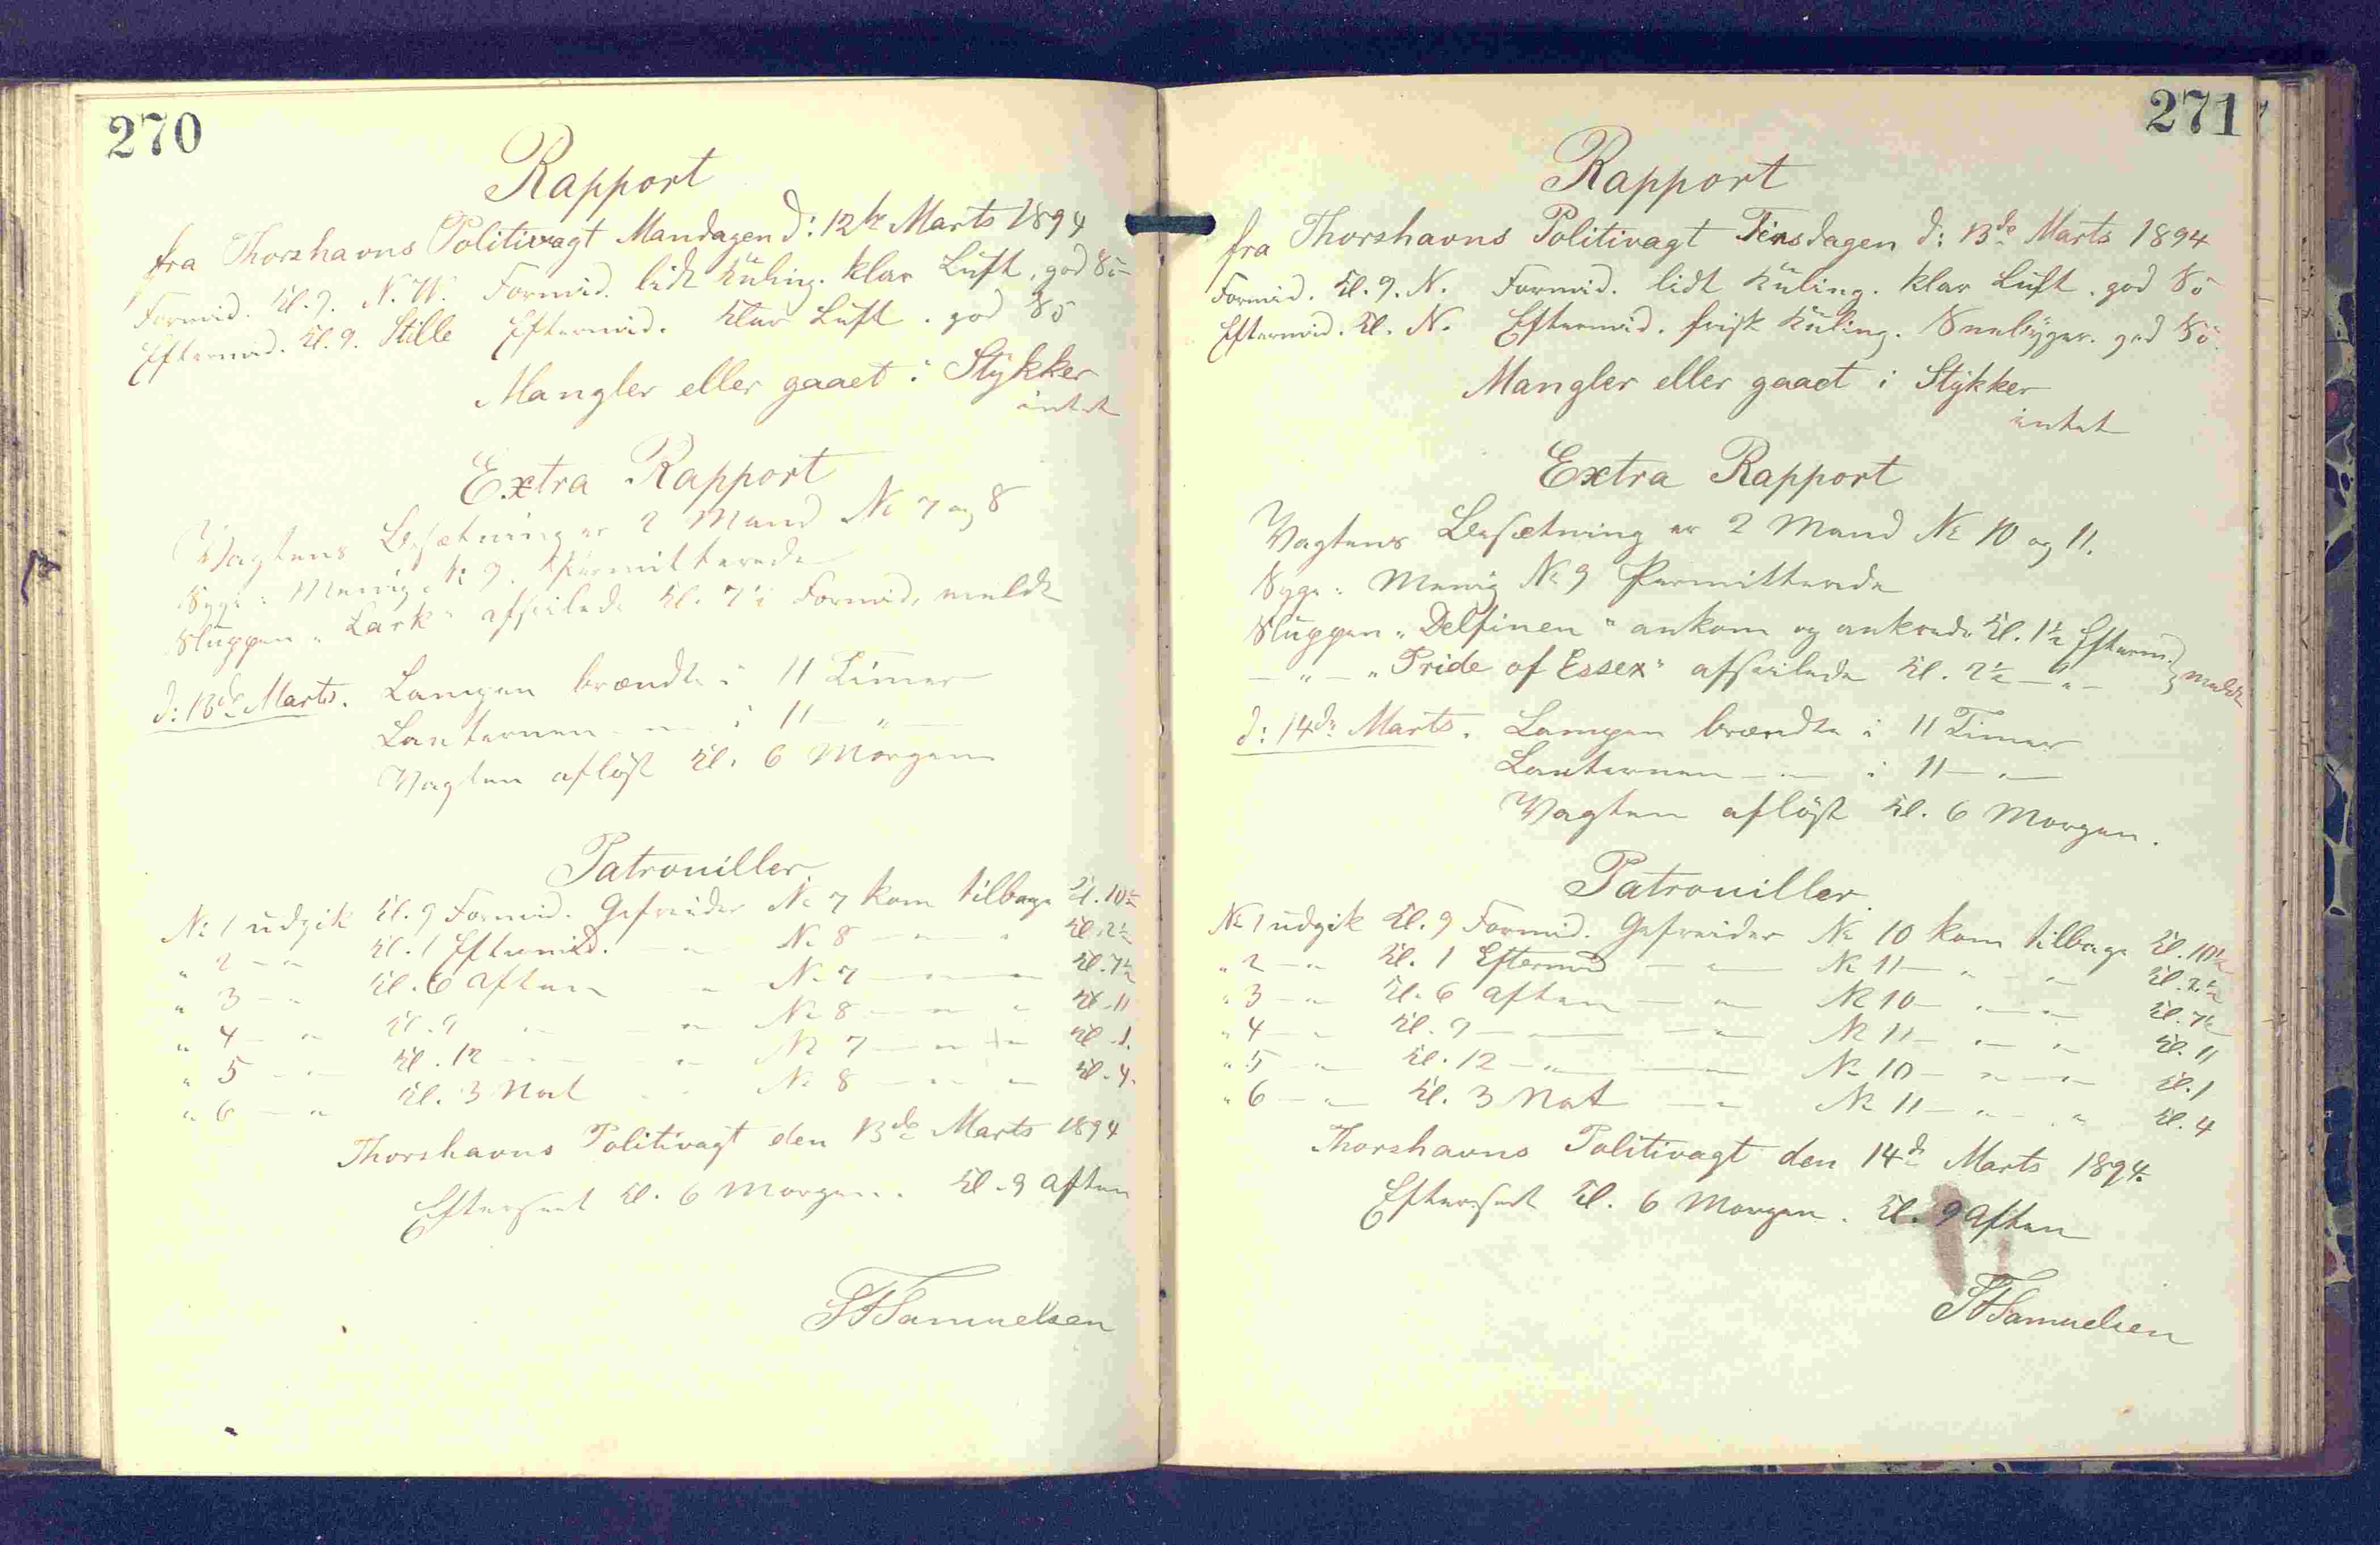 270
Rapport
fra Thorshavns Politivagt Mandagen d: 12te Marts 1894
Formid. Kl. 9. N.W. Formid. lidt Kuling. klar Luft, god Sö
Eftermid. Kl. 9. Stille Eftermid. klar Luft. god Sö
Mangler eller gaaet i Stykker
intet
Extra Rapport
Vagtens Besætning er 2 Mand No 7 og 8
Syge: Menig No 9. Permitterede
Sluppen "Lark" afseilede Kl. 7½ Formid. meldt
d: 13de Marts. Lampen brændte i 11 Timer
Lanternen — " — i 11 — " —
Vagten aflöst Kl. 6 Morgen
Patrouiller.
No 1 udgik Kl. 9 Formid. Gefreider No 7 kom tilbage Kl. 10½
" 2 — " Kl. 1 Eftermid. — " No 8 — " — " Kl. 2½
" 3 — " Kl. 6 Aften — " No 7 — " — " Kl. 7½
" 4 — " Kl. 9 — " — " No 8 — " — " Kl. 11
" 5 — " Kl. 12 — " — " No 7 — " — " Kl. 1.
" 6 — " Kl. 3 Nat — " No 8 — " — " Kl. 4.
Thorshavns Politivagt den 13de Marts 1894
Efterseet Kl. 6 Morgen. Kl. 9 Aften
Samuelsen
271
Rapport
fra Thorshavns Politivagt Tirsdagen d: 13de Marts 1894
Formid. Kl. 9. N. Formid. lidt Kuling. klar Luft. god Sö
Eftermid. Kl. N. Eftermid. frisk Kuling. Sneebyger. god Sö.
Mangler eller gaaet i Stykker
intet
Extra Rapport
Vagtens Besætning er 2 Mand No 10 og 11.
Syge: Menig No 9 Permitterede
Sluppen "Delfinen" ankom og ankrede Kl. 1½ Efterm.
— " — "Pride of Essex" afseilede Kl. 2½ — " — } meldt
d: 14de Marts. Lampen brændte i 11 Timer
Lanternen — " — i 11 — " —
Vagten aflöst Kl. 6 Morgen.
Patrouiller.
No 1 udgik Kl. 9 Formid. Gefreider No 10 kom tilbage Kl. 10½
" 2 — " Kl. 1 Eftermid — " — No 11 — " — " Kl. 2½
" 3 — " Kl. 6 Aften — " No 10 — " — " Kl. 7½
" 4 — " Kl. 9 — " — " No 11 — " — " Kl. 11
" 5 — " Kl. 12 — " — " No 10 — " — " Kl. 1
" 6 — " Kl. 3 Nat — " No 11 — " — " Kl. 4
Thorshavns Politivagt den 14de Marts 1894.
Efterseet Kl. 6 Morgen. Kl. 9 Aften
Samuelsen